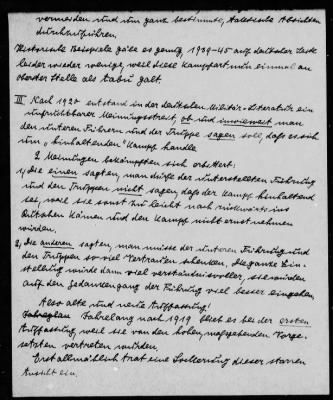 vermeiden und um ganz bestimmte, taktische Absichten
durchzuführen.
Historische Beispiele gäbe es genug, 1939-45 auf deutscher Seite
leider wieder wenige, weil diese Kampfart nun einmal an
oberster Stelle als tabu galt.
III Nach 1920 entstand in der deutschen Militär-Literatur ein
unfruchtbarer Meinungsstreit, ob und inwieweit man
den unteren Führern und der Truppe sagen soll, daß es sich
um "hinhaltenden" Kampf handle
2 Meinungen bekämpften sich erbittert:
1) die einen sagten, man dürfe der unterstellten Führung
und den Truppen nicht sagen, daß der Kampf hinhaltend
sei, weil sie sonst zu leicht nach rückwärts ins
Rutschen kämen und den Kampf nicht ernst nehmen
würden.
2) die anderen sagten, man müsse der unteren Führung und
den Truppen so viel Vertrauen schenken, die ganze Ein-
stellung würde dann viel verständnisvoller, sie würden
auf den Gedankengang der Führung viel besser eingehen.
Also alte und neue Auffassung!
Jahrelang nach 1919 blieb es bei der ersten
Auffassung, weil sie von den hohen, maßgebenden Vorge-
setzten vertreten wurden.
Erst allmählich trat eine Lockerung dieser starren
Ansicht ein.